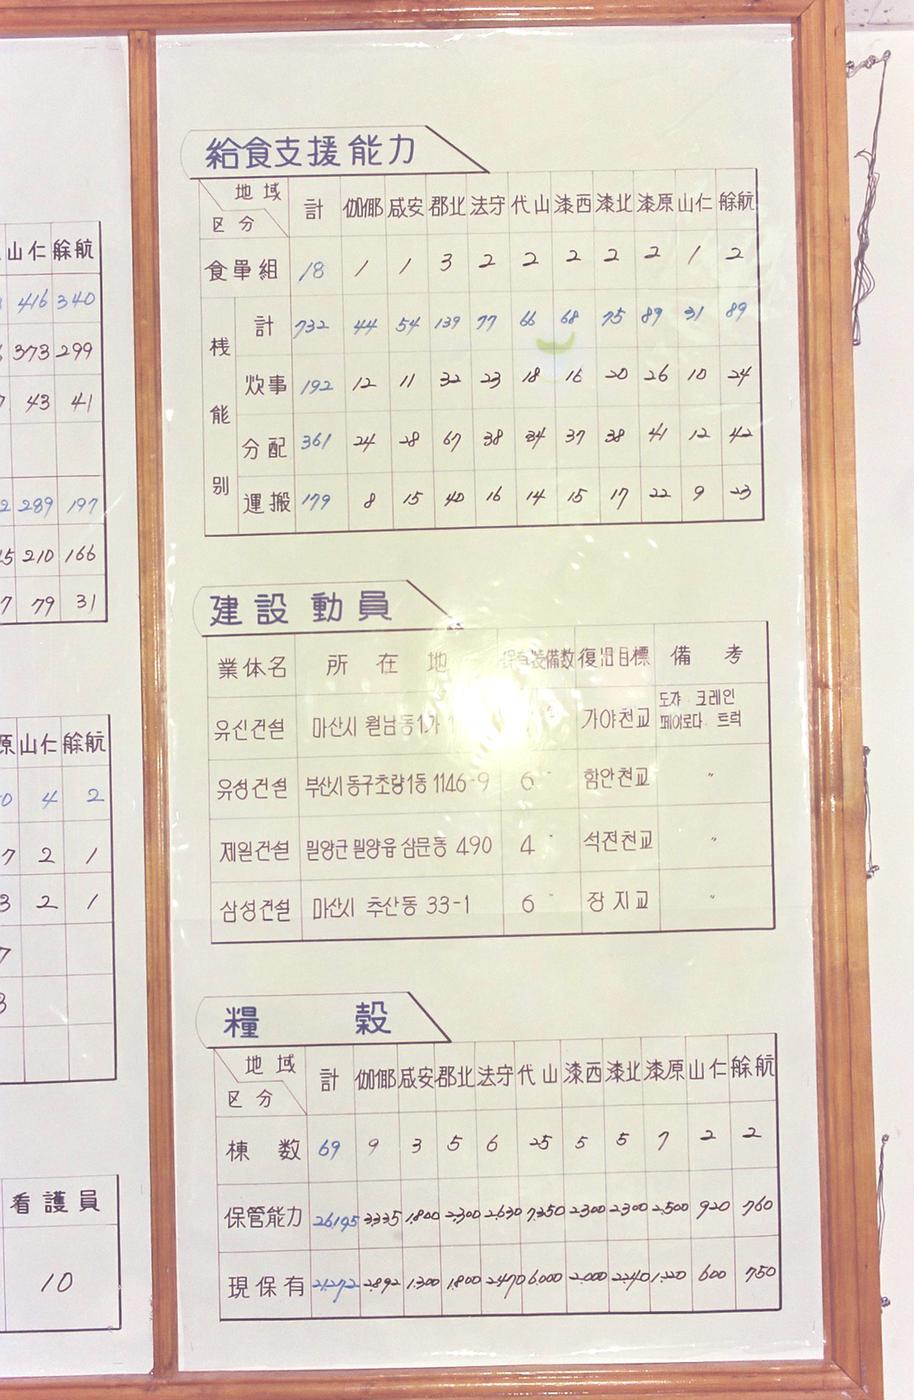 山仁 艅航
416 340
373 299
43 41
289 197
210 166
79 31
山仁 艅航
4 2
2 1
2 1
看護員
10
給食支援能力
地域
区分 計 伽倻 咸安 郡北 法守 代山 漆西 漆北 漆原 山仁 艅航
食單組 18 1 1 3 2 2 2 2 2 1 2
桟能別
計 732 44 54 139 77 66 68 75 89 31 89
炊事 192 12 11 32 23 18 16 20 26 10 24
分配 361 24 28 67 38 34 37 38 41 12 42
運搬 179 8 15 40 16 14 15 17 22 9 23
建設動員
業体名 所在地 保有装備数 復旧目標 備考
유신건설 마산시 월남동1가 가야천교 도쟈 크레인
페이로다 트럭
유성건설 부산시동구초량1동 1146-9 6 함안천교 〃
제일건설 밀양군 밀양읍 삼문동 490 4 석전천교 〃
삼성건설 마산시 추산동 33-1 6 장지교 〃
糧穀
地域
区分 計 伽倻 咸安 郡北 法守 代山 漆西 漆北 漆原 山仁 艅航
棟数 69 9 3 5 6 25 5 5 7 2 2
保管能力 26,195 3,335 1,800 2,300 2,630 7,350 2,300 2,300 2,500 920 760
現保有 21,272 2,892 1,300 1,800 2,470 6,000 2,000 2,240 1,220 600 750